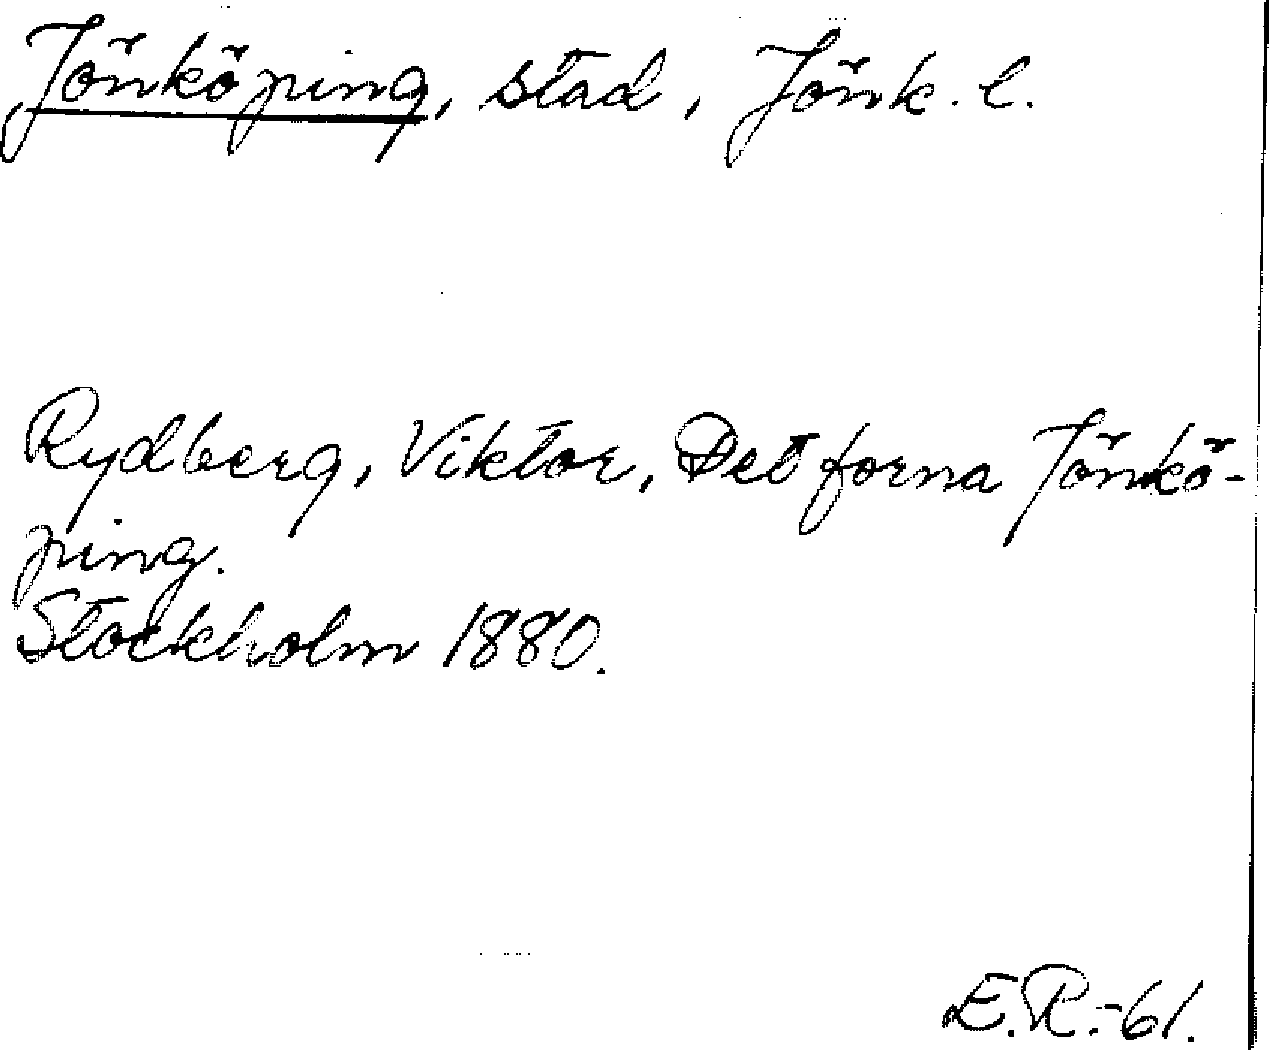 Jönköping, stad, Jönk. l.
Rydberg, Viktor, Det forna Jönkö-
ping.
Stockholm 1880.
E.R.-61.